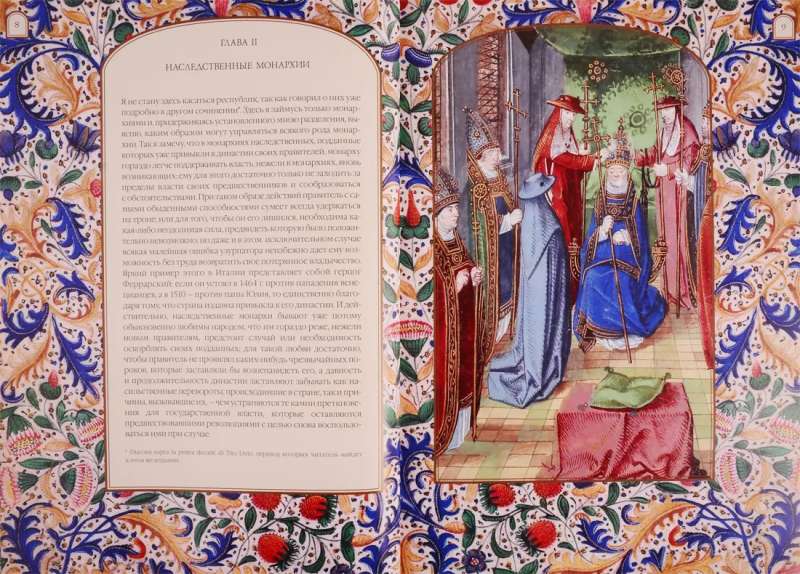 8
9
ГЛАВА II
НАСЛЕДСТВЕННЫЕ МОНАРХИИ
Я не стану здесь касаться республик, так как говорил о них уже
подробно в другом сочинении*. Здесь я займусь только монар-
хиями и, придерживаясь установленного мною разделения, вы-
ясню, каким образом могут управляться всякого рода монар-
хии. Так я замечу, что в монархиях наследственных, подданные
которых уже привыкли к династии своих правителей, монарху
гораздо легче поддерживать власть, нежели в монархиях, вновь
возникающих: ему для этого достаточно только не заходить за
пределы власти своих предшественников и сообразоваться
с обстоятельствами. При таком образе действий правитель с са-
мыми обыденными способностями сумеет всегда удержаться
на троне; или для того, чтобы он его лишился, необходима ка-
кая-либо неодолимая сила, предвидеть которую было положи-
тельно невозможно; но даже и в этом исключительном случае
всякая малейшая ошибка узурпатора неизбежно дает ему воз-
можность без труда возвратить свое потерянное владычество.
Яркий пример этого в Италии представляет собой герцог
Феррарский: если он устоял в 1464 г. против нападения вене-
цианцев, а в 1510 – против папы Юлия, то единственно благо-
даря тому, что страна издавна привыкла к его династии. И дей-
ствительно, наследственные монархи бывают уже потому
обыкновенно любимы народом, что им гораздо реже, нежели
новым правителям, предстоит случай или необходимость
оскорблять своих подданных; для такой любви достаточно,
чтобы правитель не проявлял каких-нибудь чрезвычайных по-
роков, которые заставляли бы возненавидеть его, а давность
и продолжительность династии заставляют забывать как на-
сильственные перевороты, происходившие в стране, так и при-
чины, вызывавшие их, – чем устраняются те камни преткнове-
ния для государственной власти, которые оставляются
предшествовавшими революциями с целью снова воспользо-
ваться ими при случае.
* Discorsi sopra la prima decade di Tito Livio, перевод которых читатель найдет
в этом же издании.